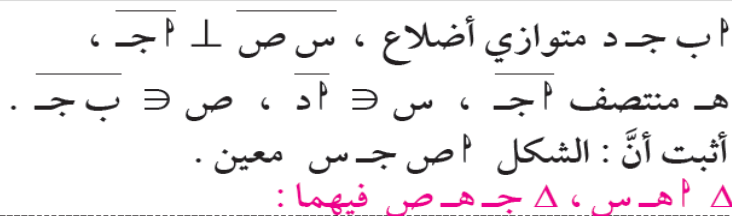 أ ب جـ د متوازي أضلاع ، س ص ⊥ أ جـ ،
هـ منتصف أ جـ ، س ∈ أ د ، ص ∈ ب جـ .
أثبت أنَّ : الشكل أ ص جـ س معين .
Δ أ هـ س ، Δ جـ هـ ص فيهما :